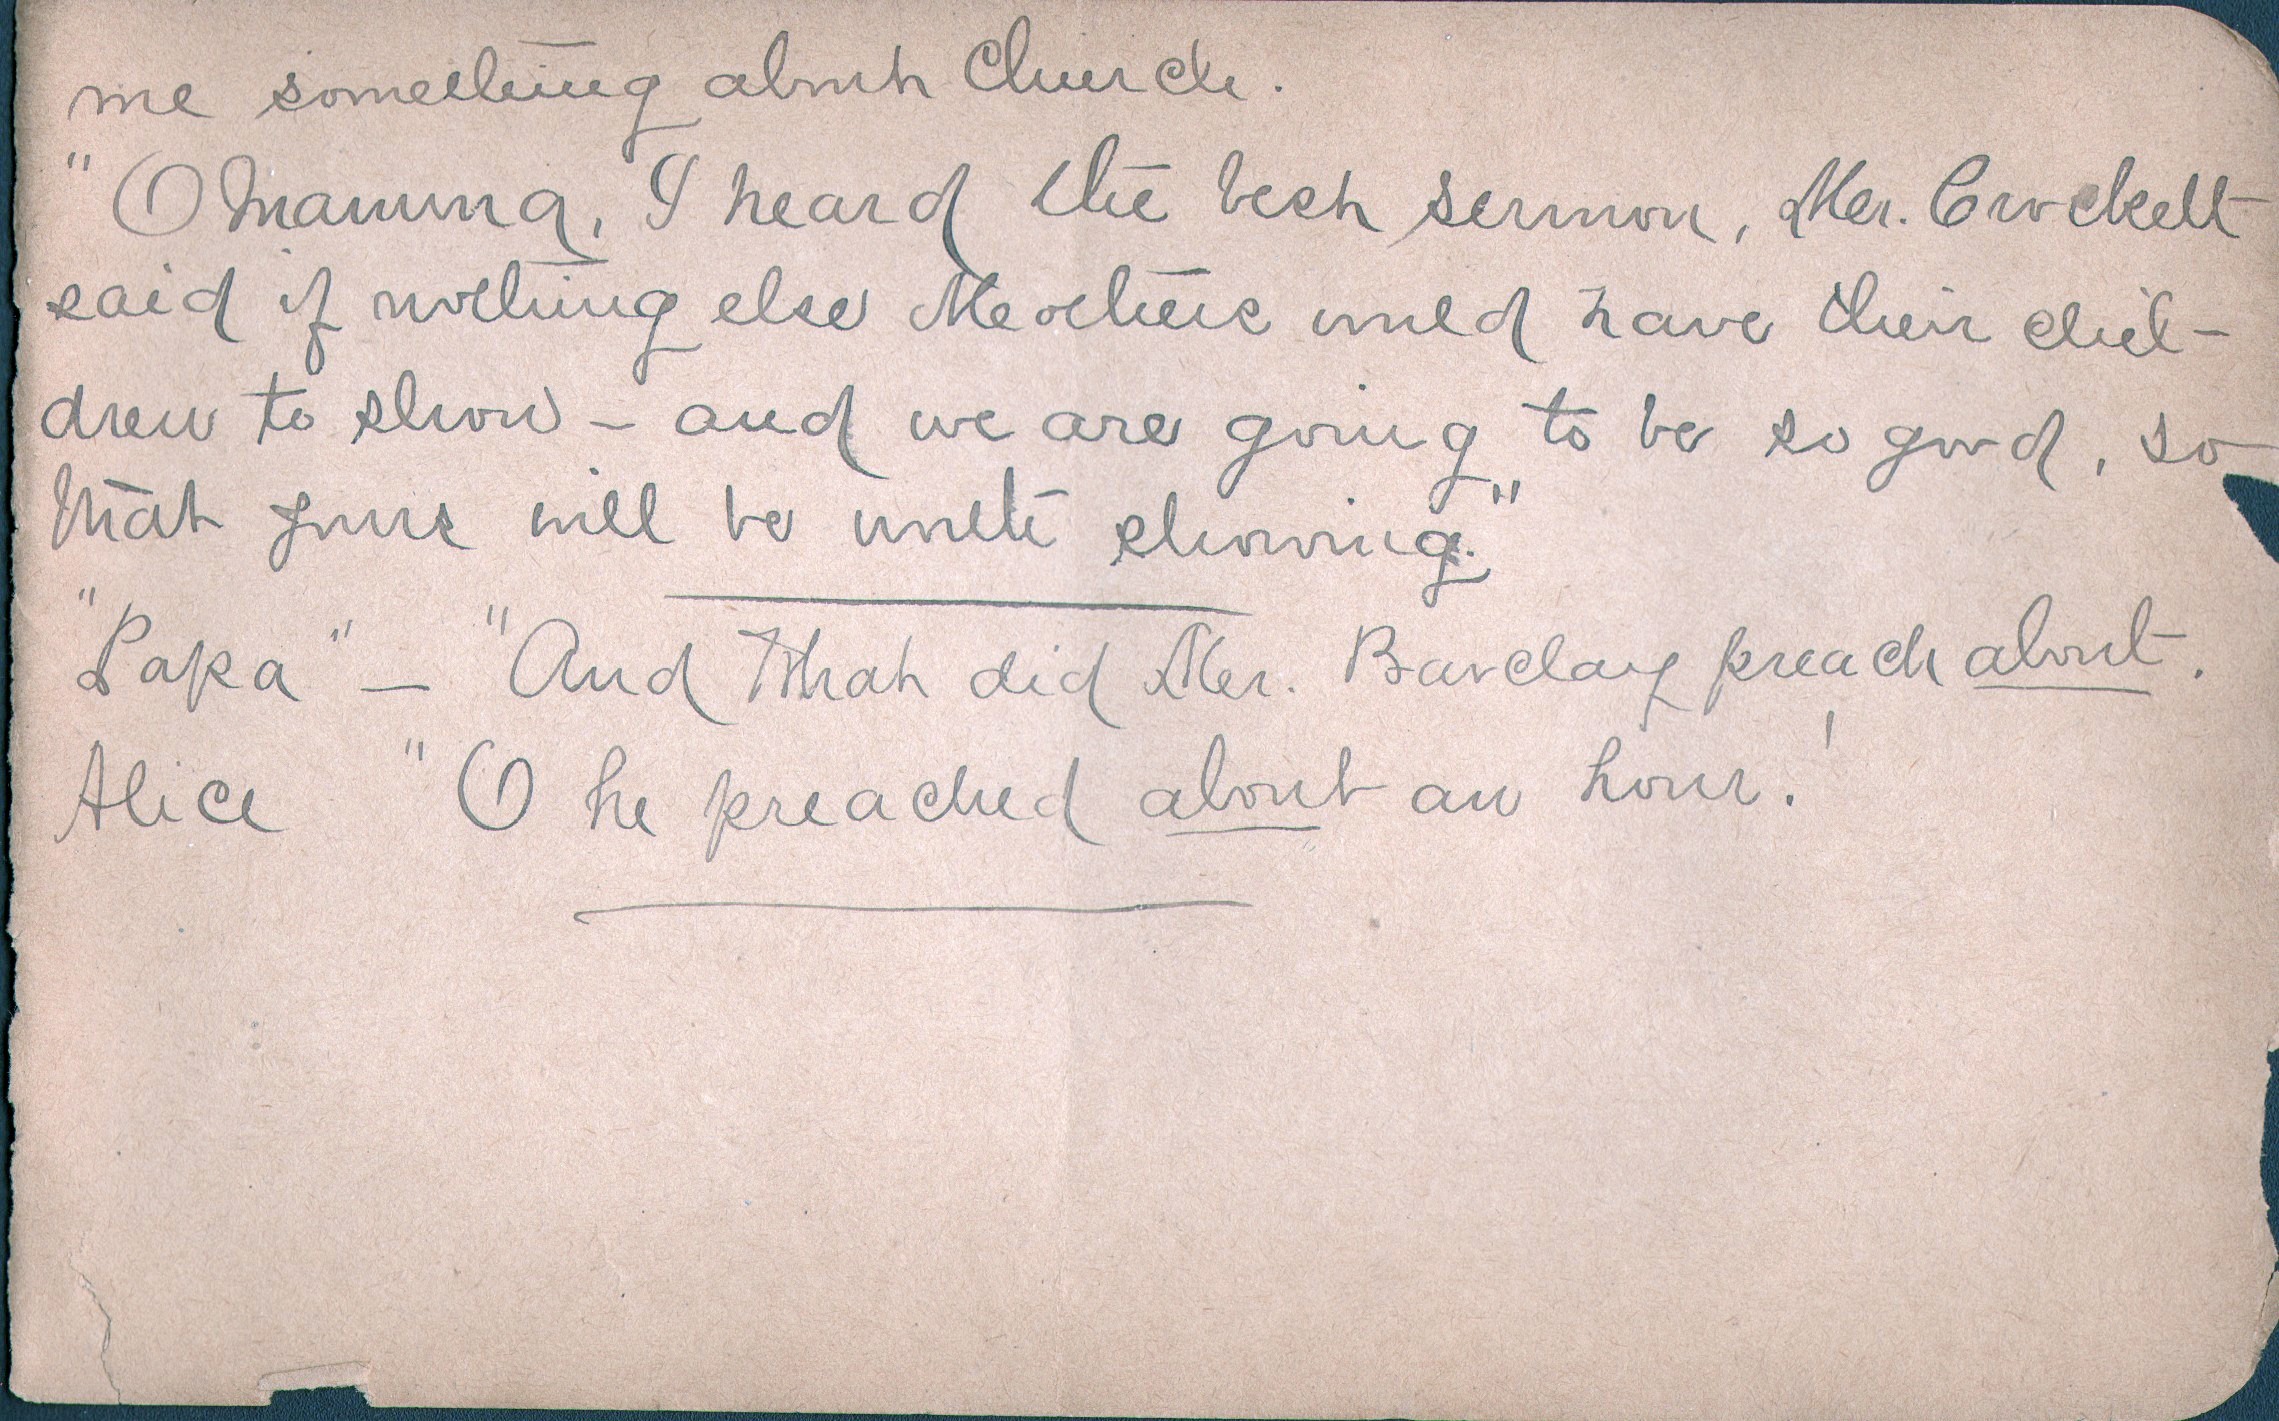 me something about Church.
"O Mamma, I heard the best sermon, Mr. Crockett
said if nothing else Mothers would have their chil-
dren to show - and we are going to be so good, so
that yours will be worth showing."
"Papa" - "And What did Mr. Barclay preach about.
Alice "O he preached about an hour!